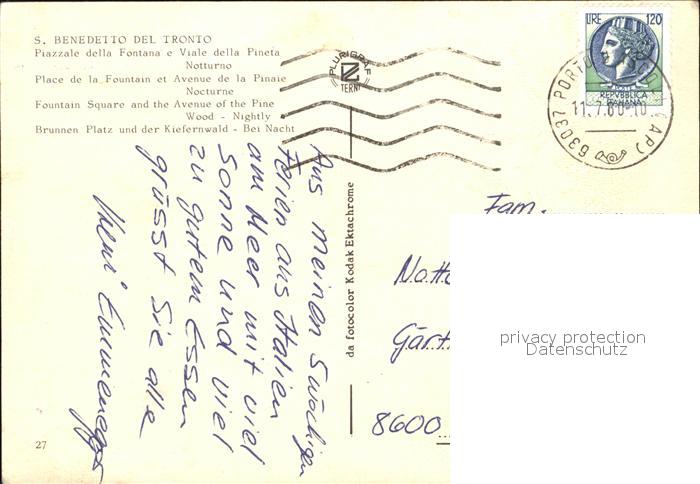 S. BENEDETTO DEL TRONTO
Piazzale della Fontana e Viale della Pineta
Notturno
Place de la Fountain et Avenue de la Pinaie
Nocturne
Fountain Square and the Avenue of the Pine
Wood - Nightly
Brunnen Platz und der Kiefernwald - Bei Nacht
PLURIGRAF
TERNI
LIRE 120
REPVBBLICA
ITALIANA
63037 PORTO (AP)
Aus meinen 3 wöchigen
Ferien aus Italien
am Meer mit viel
Sonne und viel
zu gutem Essen
grüsst Sie alle
da fotocolor Kodak Ektachrome
Fam.
Gärt
8600
privacy protection
Datenschutz
27